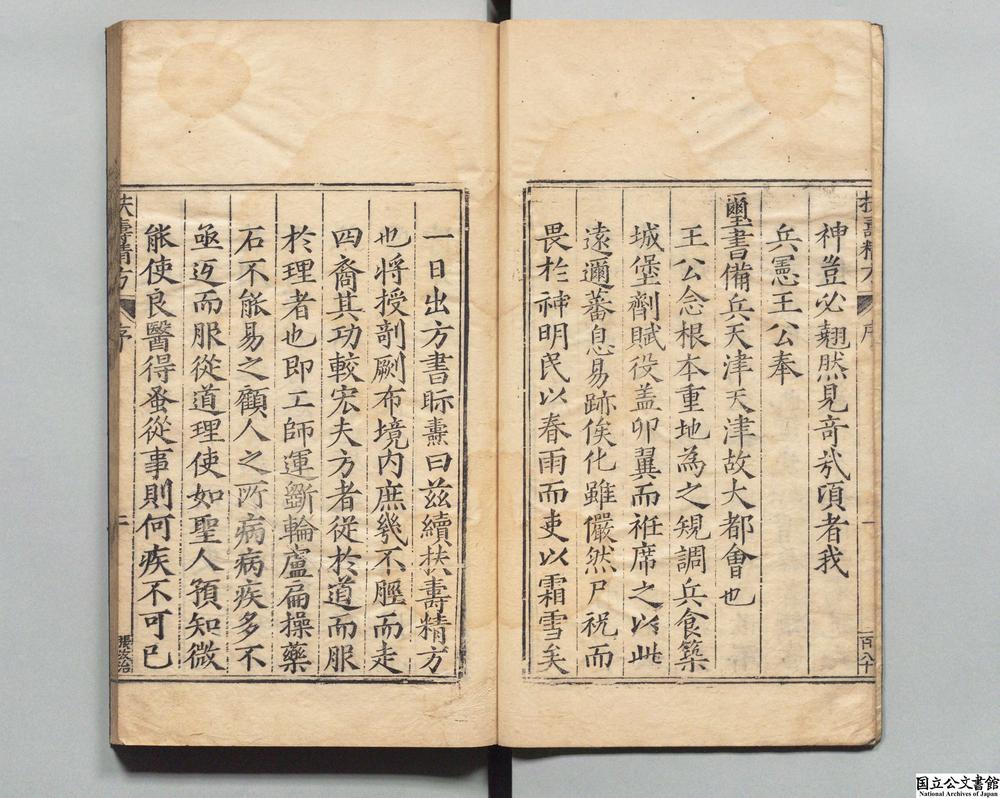 神豈必翹然見奇哉頃者我
兵憲王公奉
璽書備兵天津天津故大都會也
王公念根本重地為之規調兵食築
城堡劑賦役盖卯翼而袵席之以此
遠邇蕃息易跡俟化雖儼然尸祝而
畏於神明民以春雨而吏以霜雪矣
序
一日出方書眎燾曰茲續扶壽精方
也將授剞劂布境内庶幾不脛而走
四裔其功較宏夫方者從於道而服
於理者也即工師運斲輪盧扁操藥
石不能易之顧人之所病病疾多不
亟迓而服從道理使如聖人預知微
能使良醫得蚤從事則何疾不可已
扶壽精方
序
二
国立公文書館
National Archives of Japan